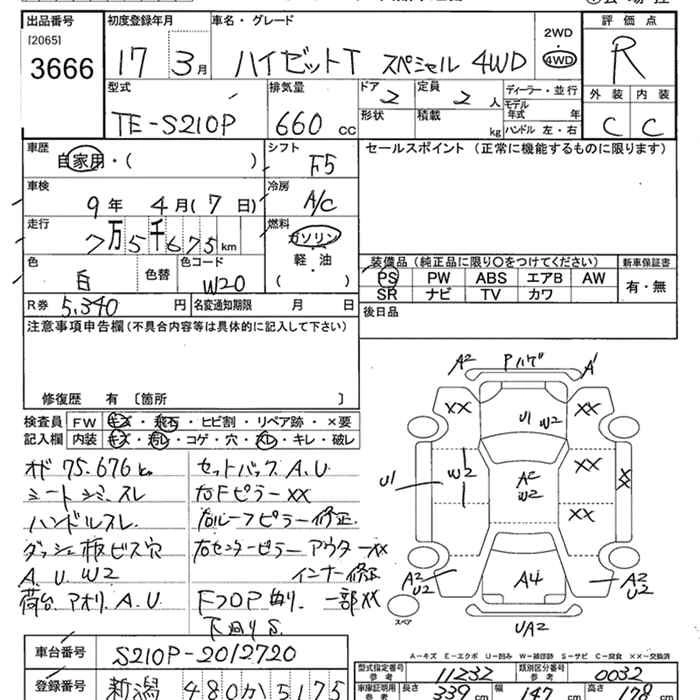 出品番号 初度登録年月 車名・グレード 評価点
[2065] 3666 17 3月 ハイゼットT スペシャル 4WD 2WD 4WD R
型式 排気量 ドア 2 定員 2人 ディーラー・並行 外装 内装
TE-S210P 660 cc 形状 積載 kg モデル年式 年 ハンドル 左・右 C C
車歴 シフト セールスポイント (正常に機能するものに限ります)
自家用・( ) F5
車検 冷房
9年 4月(7日) A/C
走行 燃料
7万5千675km ガソリン
色 色替 色コード 軽・油 装備品 (純正品に限り○をつけてください) 新車保証書
白 W20 ( ) PS PW ABS エアB AW 有・無
SR ナビ TV カワ
R券 5,340 円 名変通知期限 月 日 後日品
注意事項申告欄 (不具合内容等は具体的に記入して下さい)
修復歴 有 〔箇所 〕
検査員 FW キズ・飛石・ヒビ割・リペア跡・×要
記入欄 内装 キズ・汚レ・コゲ・穴・スレ・キレ・破レ
オド 75.676km セットバック A.U
シートシミ.スレ 右Fピラー XX
ハンドルスレ. 右ルーフピラー修正.
ダッシュ板ビス穴 右センターピラー アウターXX
A.U.W2 インナー修正
荷台.アオリ.A.U Fフロア曲り.一部XX
下廻りS.
A2 Pハゲ A1
XX U1 W2 XX
U1 W2 A2 W2 XX XX
XX
A2 U2 A4 A2 U2
スペア UA2
A-キズ E-エクボ U-凹み W-補修跡 S-サビ C-腐食 XX-交換済
車台番号 S210P-2012720
型式指定番号 参考 11232 類別区分番号 参考 0032
登録番号 新潟 480か5175
車庫証明用 参考 長さ 339cm 幅 147cm 高さ 178cm